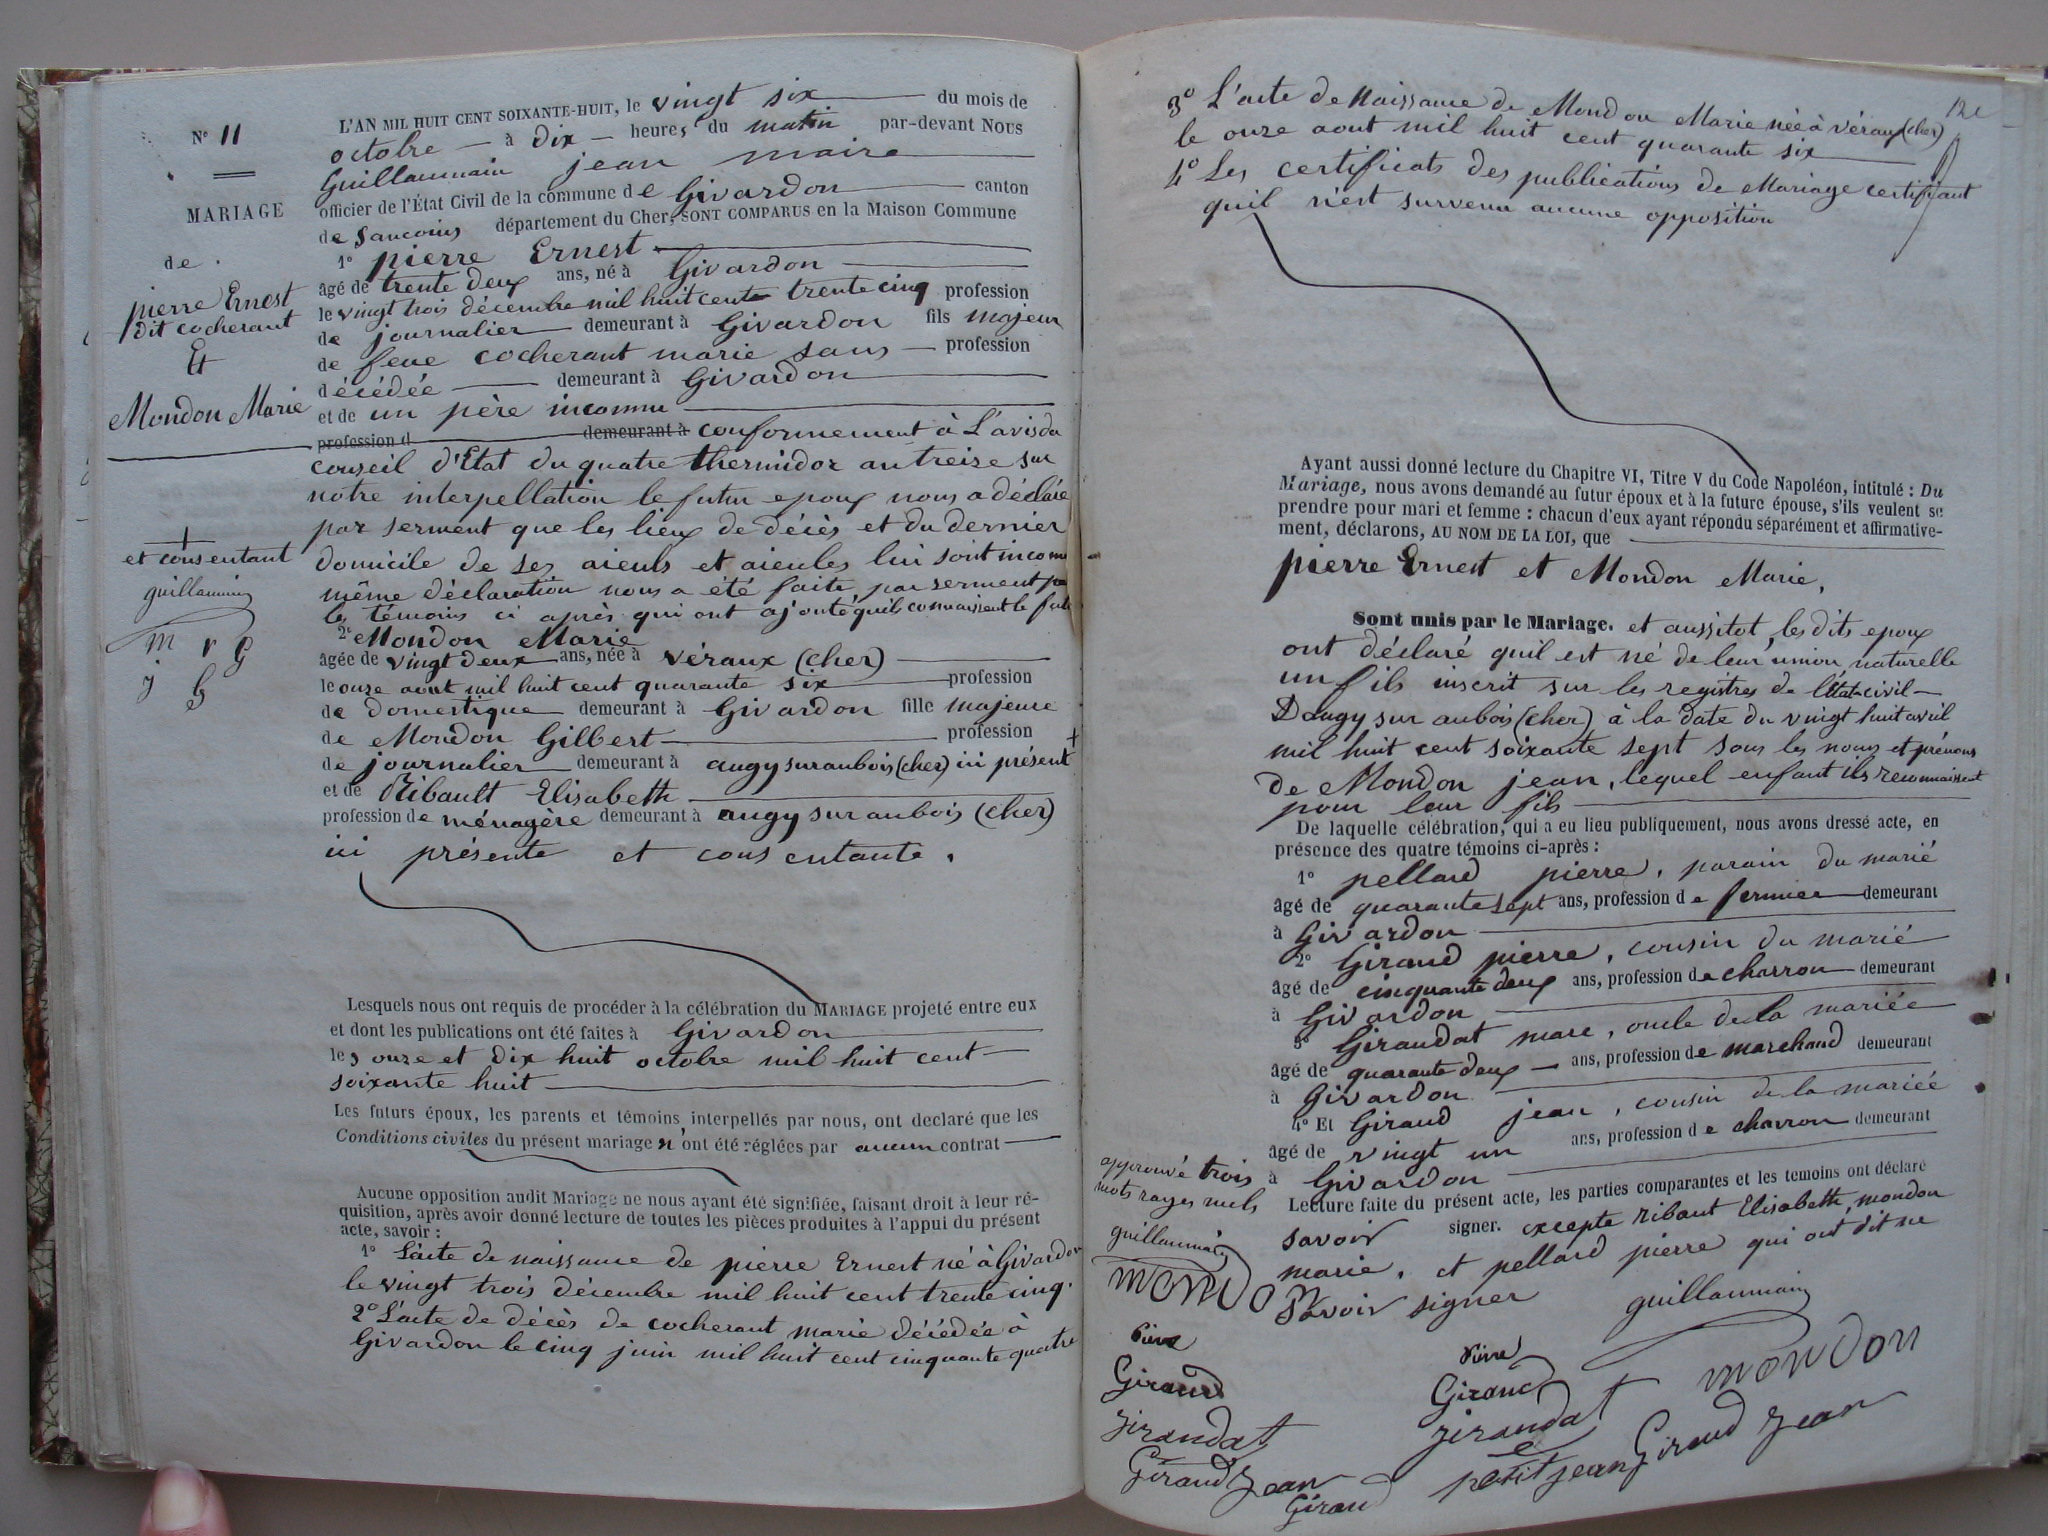 N° 11
MARIAGE
de
pierre Ernest
dit cocherant
Et
Mondon Marie
+
et consentant
guillaumin
m r G
j G
L'AN MIL HUIT CENT SOIXANTE-HUIT, le vingt six du mois de
octobre à dix heures du matin par-devant NOUS
Guillaumain jean maire
officier de l'État Civil de la commune de Givardon canton
de Sancoins département du Cher, SONT COMPARUS en la Maison Commune
1° pierre Ernest
âgé de trente deux ans, né à Givardon
le vingt trois décembre mil huit cent trente cinq profession
de journalier demeurant à Givardon fils majeur
de feue cocherant marie sans profession
décédée demeurant à Givardon
et de un père inconnu
profession d demeurant à conformement à L'avis du
conseil d'Etat du quatre thermidor an treize sur
notre interpellation le futur epoux nous a déclaré
par serment que les lieux de décès et du dernier
domicile de ses aieuls et aieules lui sont inconnu
même déclaration nous a été faite, par serment
les témoins ci après qui ont ajouté quils connaissent le
2° Mondon Marie
âgée de vingt deux ans, née à véraux (cher)
le onze aout mil huit cent quarante six profession
de domestique demeurant à Givardon fille majeure
de Mondon Gilbert profession +
de journalier demeurant à augy sur aubois (cher) ici présent
et de Ribault Elisabeth
profession de ménagère demeurant à augy sur aubois (cher)
ici présente et consentante.
Lesquels nous ont requis de procéder à la célébration du MARIAGE projeté entre eux
et dont les publications ont été faites à Givardon
les onze et dix huit octobre mil huit cent
soixante huit
Les futurs époux, les parents et témoins interpellés par nous, ont declaré que les
Conditions civiles du présent mariage n'ont été réglées par aucun contrat
Aucune opposition audit Mariage ne nous ayant été signifiée, faisant droit à leur ré-
quisition, après avoir donné lecture de toutes les pièces produites à l'appui du présent
acte, savoir :
1° L'acte de naissance de pierre Ernest né à Givardon
le vingt trois décembre mil huit cent trente cinq.
2° L'acte de décès de cocherant marie décédée à
Givardon le cinq juin mil huit cent cinquante quatre
3° L'acte de Naissance de Mondon Marie née à véraux (cher)
le onze aout mil huit cent quarante six
4° Les certificats des publications de Mariage certifiant
quil n'est survenu aucune opposition
Ayant aussi donné lecture du Chapitre VI, Titre V du Code Napoléon, intitulé : Du
Mariage, nous avons demandé au futur époux et à la future épouse, s'ils veulent se
prendre pour mari et femme : chacun d'eux ayant répondu séparément et affirmative-
ment, déclarons, AU NOM DE LA LOI, que
pierre Ernest et Mondon Marie,
Sont unis par le Mariage. et aussitot les dits epoux
ont déclaré quil est né de leur union naturelle
un fils inscrit sur les registres de l'État-civil
Daugy sur aubois (cher) à la date du vingt huit avril
mil huit cent soixante sept sous les noms et prénoms
de Mondon jean, lequel enfant ils reconnaissent
pour leur fils
De laquelle célébration, qui a eu lieu publiquement, nous avons dressé acte, en
présence des quatre témoins ci-après :
1° pellard pierre, parain du marié
âgé de quarante sept ans, profession de fermier demeurant
à Givardon
2° Giraud pierre, cousin du marié
âgé de cinquante deux ans, profession de charron demeurant
à Givardon
3° Giraudat marc, oncle de la mariée
âgé de quarante deux ans, profession de marchand demeurant
à Givardon
4° Et Giraud jean, cousin de la mariée
âgé de vingt un ans, profession de charron demeurant
à Givardon
Lecture faite du présent acte, les parties comparantes et les temoins ont déclaré
savoir signer. excepte Ribaut Elisabeth, mondon
marie, et pellard pierre qui ont dit ne
savoir signer guillaumain
approuvé trois
mots rayes nuls
guillaumain
MONDON
Pierre
Giraud
Girandat
Giraud Jean
Giraud
Pierre
Giraud
mondon
Girandat
petit jean Giraud Jean